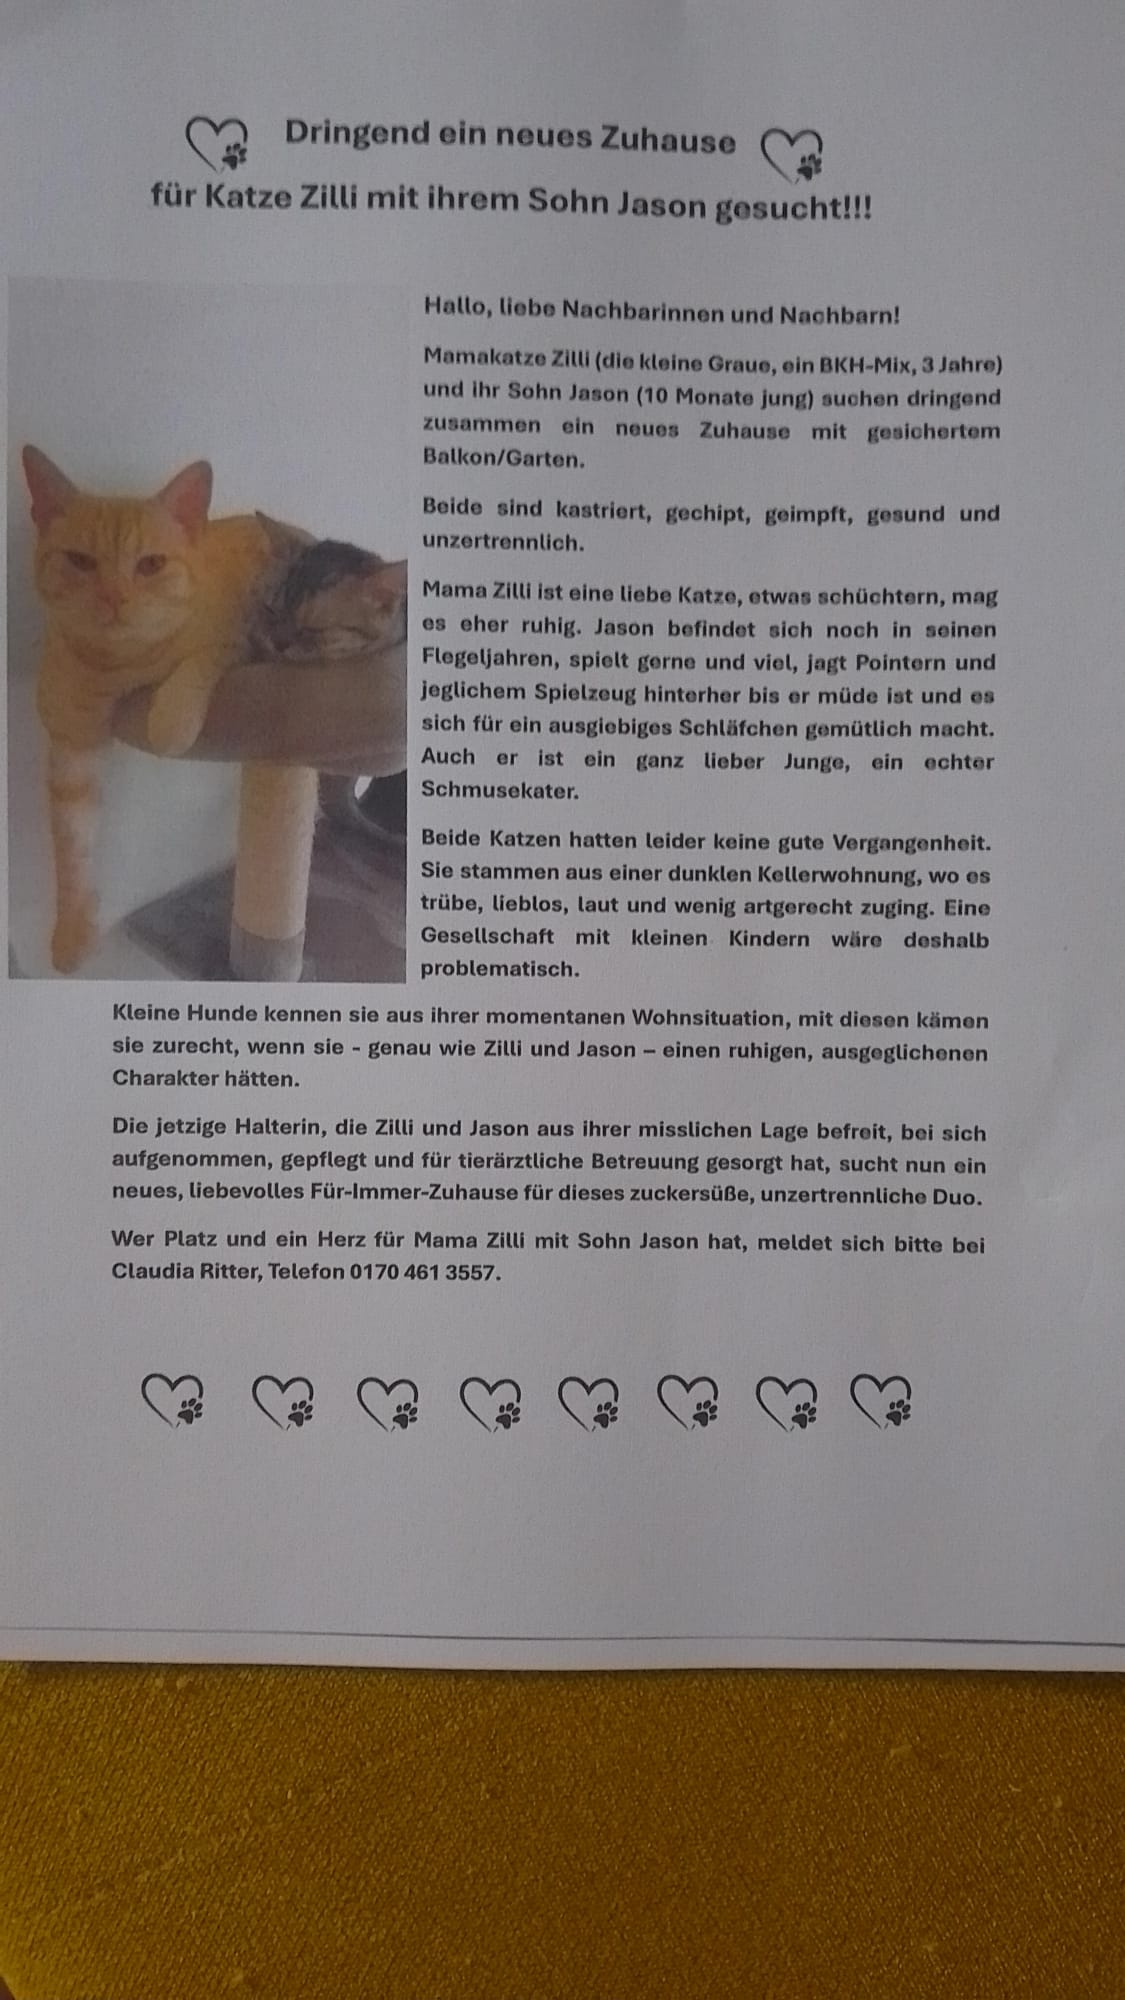 Dringend ein neues Zuhause
für Katze Zilli mit ihrem Sohn Jason gesucht!!!
Hallo, liebe Nachbarinnen und Nachbarn!
Mamakatze Zilli (die kleine Graue, ein BKH-Mix, 3 Jahre)
und ihr Sohn Jason (10 Monate jung) suchen dringend
zusammen ein neues Zuhause mit gesichertem
Balkon/Garten.
Beide sind kastriert, gechipt, geimpft, gesund und
unzertrennlich.
Mama Zilli ist eine liebe Katze, etwas schüchtern, mag
es eher ruhig. Jason befindet sich noch in seinen
Flegeljahren, spielt gerne und viel, jagt Pointern und
jeglichem Spielzeug hinterher bis er müde ist und es
sich für ein ausgiebiges Schläfchen gemütlich macht.
Auch er ist ein ganz lieber Junge, ein echter
Schmusekater.
Beide Katzen hatten leider keine gute Vergangenheit.
Sie stammen aus einer dunklen Kellerwohnung, wo es
trübe, lieblos, laut und wenig artgerecht zuging. Eine
Gesellschaft mit kleinen Kindern wäre deshalb
problematisch.
Kleine Hunde kennen sie aus ihrer momentanen Wohnsituation, mit diesen kämen
sie zurecht, wenn sie - genau wie Zilli und Jason – einen ruhigen, ausgeglichenen
Charakter hätten.
Die jetzige Halterin, die Zilli und Jason aus ihrer misslichen Lage befreit, bei sich
aufgenommen, gepflegt und für tierärztliche Betreuung gesorgt hat, sucht nun ein
neues, liebevolles Für-Immer-Zuhause für dieses zuckersüße, unzertrennliche Duo.
Wer Platz und ein Herz für Mama Zilli mit Sohn Jason hat, meldet sich bitte bei
Claudia Ritter, Telefon 0170 461 3557.